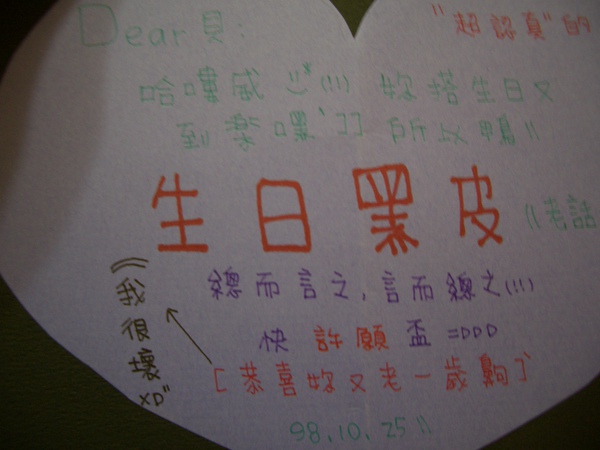 Dear 貝:
"超認真"的
哈嘍威 !!*(!!!) 妳搭生日又
到 嘿`]] 所以鴨!!
生日黑皮
((老話
總而言之,言而總之(!!!)
快許願盃 =DDD
[恭喜妳又老一歲齁]
((我很壞XD"
98.10.25!!